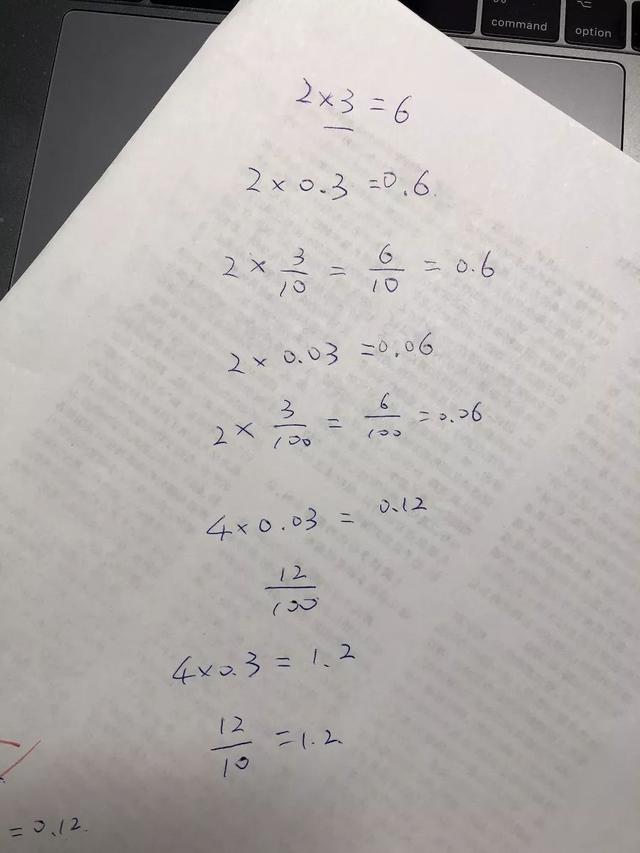 command
option
2×3=6
2×0.3=0.6
2×3/10=6/10=0.6
2×0.03=0.06
2×3/100=6/100=0.06
4×0.03=0.12
12/100
4×0.3=1.2
12/10=1.2
=0.12